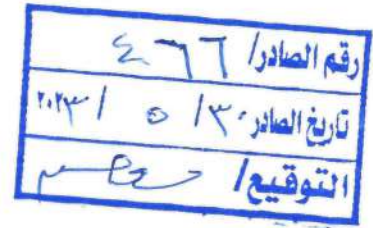 رقم الصادر/ ٤٦٦
تاريخ الصادر ٣٠/ ٥ / ٢٠٢٣
التوقيع/